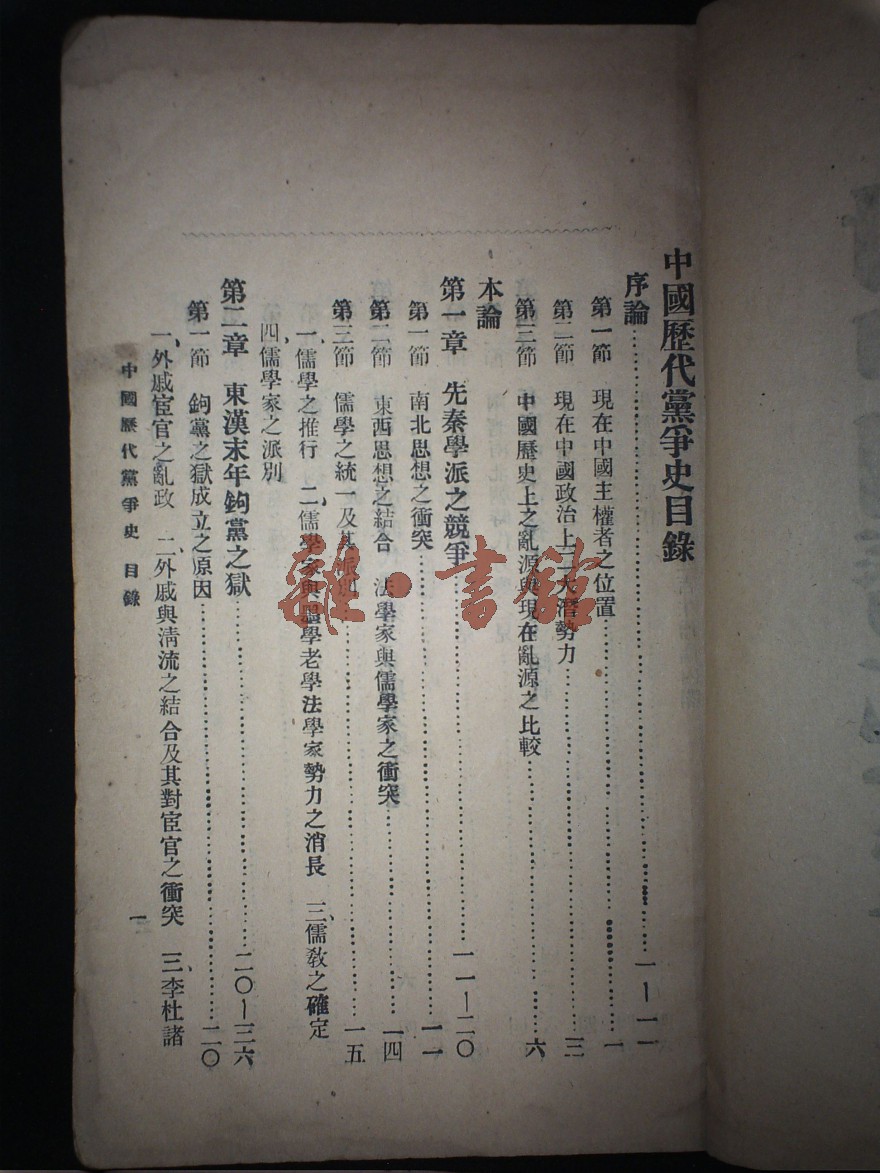 中國歷代黨爭史目錄
序論……一—一一
第一節 現在中國主權者之位置……一
第二節 現在中國政治上三大潛勢力……三
第三節 中國歷史上之亂源與現在亂源之比較……六
本論
第一章 先秦學派之競爭……一一—二〇
第一節 南北思想之衝突……一一
第二節 東西思想之結合 法學家與儒學家之衝突……一四
第三節 儒學之統一及其派別……一五
一、儒學之推行 二、儒學家與墨學老學法學家勢力之消長 三、儒教之確定
四、儒學家之派別
第二章 東漢末年鉤黨之獄……二〇—三六
第一節 鉤黨之獄成立之原因……二〇
一、外戚宦官之亂政 二、外戚與淸流之結合及其對宦官之衝突 三、李杜諸
中國歷代黨爭史 目錄 一
雜·書館